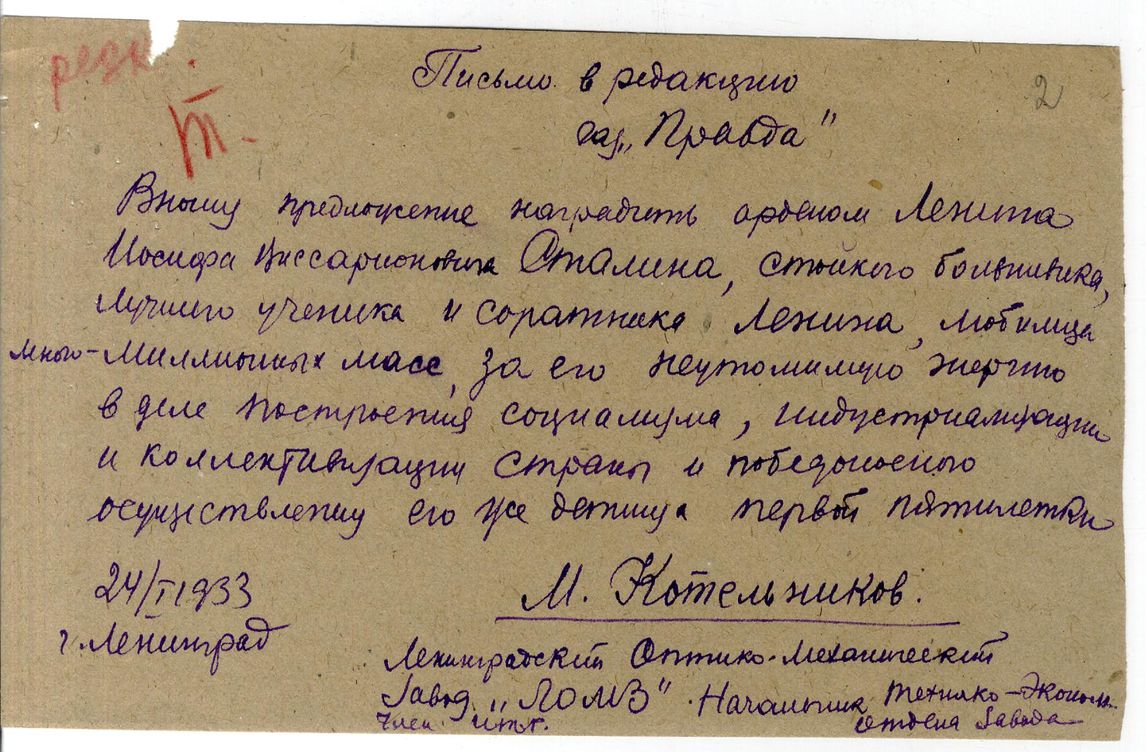 резк.
Т-
2
Письмо в редакцию
газ. „Правда"
Вношу предложение наградить орденом Ленина
Иосифа Виссарионовича Сталина, стойкого большевика,
лучшего ученика и соратника Ленина, любимца
много-миллионных масс, за его неутомимую энергию
в деле построения социализма, индустриализации
и коллективизации страны и победоносного
осуществлению его же детища первой пятилетки
24/I 1933
г. Ленинград
М. Котельников.
Ленинградский Оптико-Механический
Завод „ЛОМЗ". Начальник технико-эконом.
отдела завода
Член